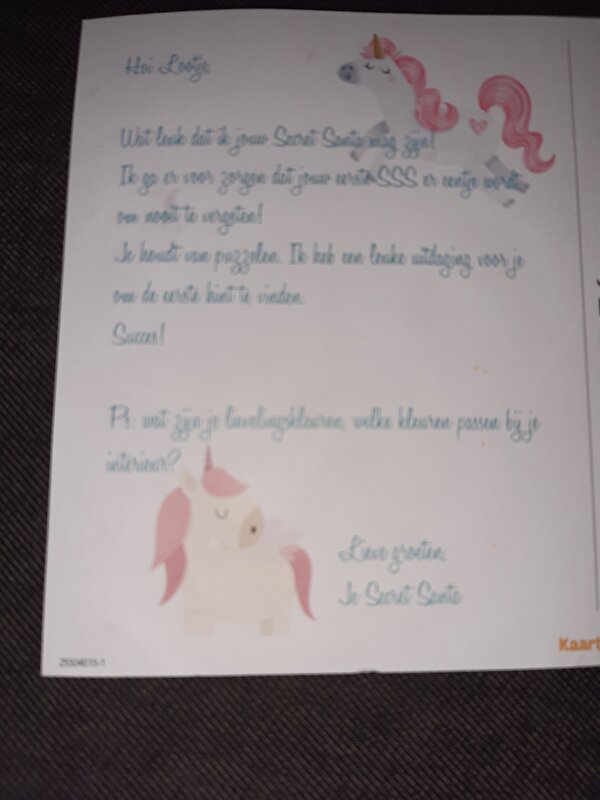 Hoi Lootje,
Wat leuk dat ik jouw Secret Santa mag zijn!
Ik ga er voor zorgen dat jouw eerste SSS er eentje wordt
om nooit te vergeten!
Je houdt van puzzelen. Ik heb een leuke uitdaging voor je
om de eerste hint te vinden.
Succes!
Ps. wat zijn je lievelingskleuren, welke kleuren passen bij je
interieur?
Lieve groeten,
Je Secret Santa
Kaart